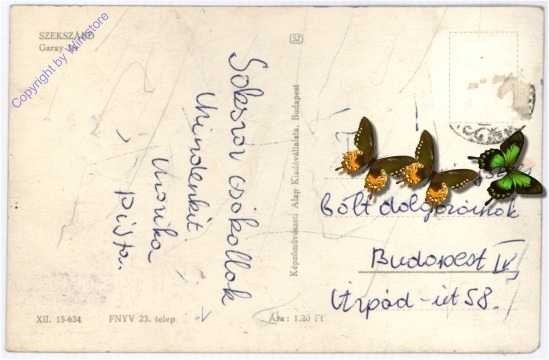 SZEKSZÁRD
Garay tér
Copyright by Winstore
Sokszor csókollok
Mindenkit
Mónika
Pista.
Képzőművészeti Alap Kiadóvállalata, Budapest
Bolt dolgozóinok
Budapest IV.
Árpád-út 58.
XII. 15-634
FNYV 23. telep
Ára: 1,20 Ft